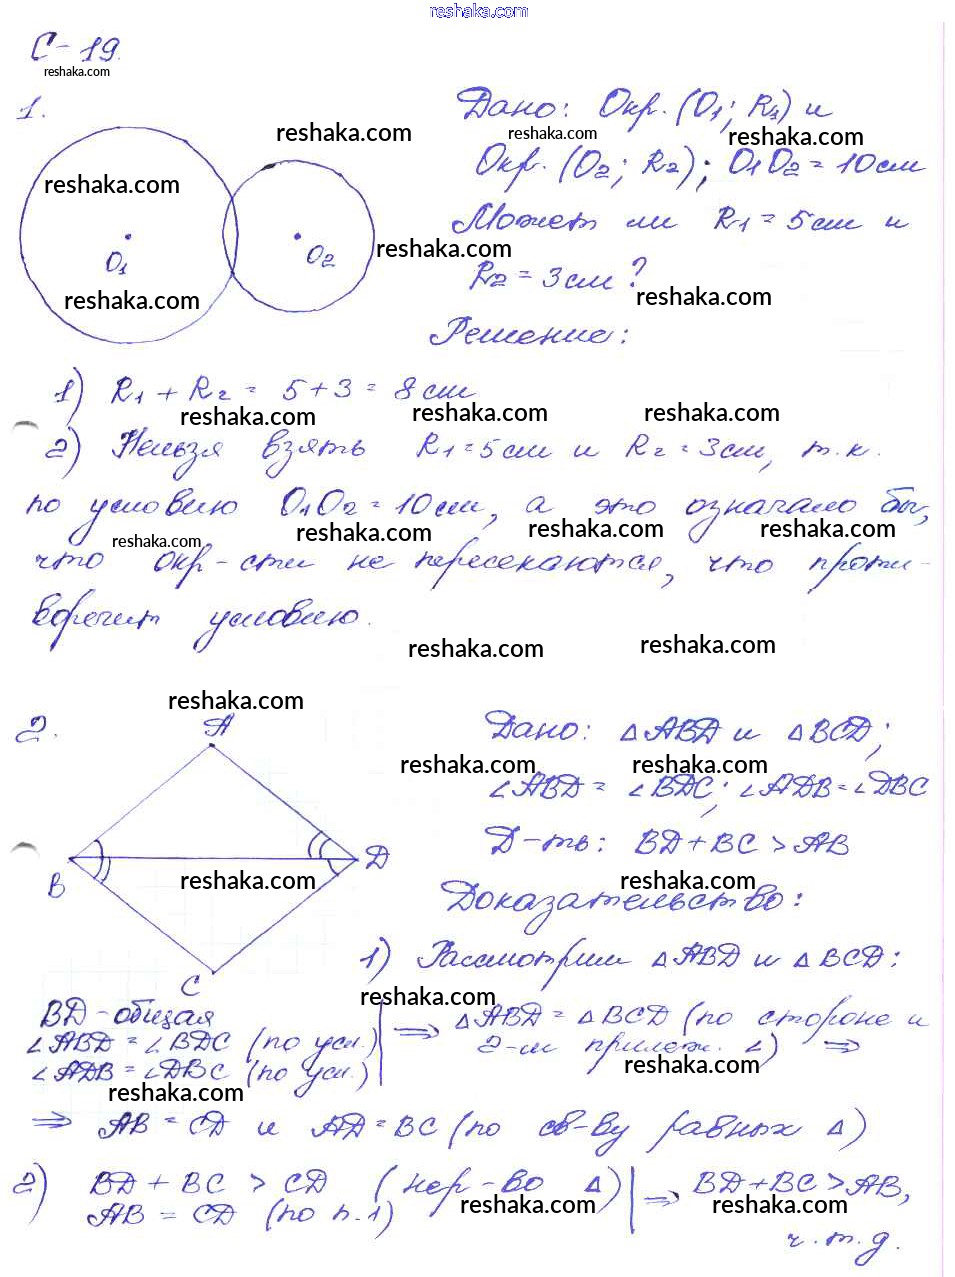 reshaka.com
С-19.
reshaka.com
1.
Дано: Окр. (O₁; R₁) и
reshaka.com reshaka.com reshaka.com
Окр. (O₂; R₂); O₁O₂ = 10 см
reshaka.com
Может ли R₁ = 5 см и
reshaka.com
O₁ O₂
R₂ = 3 см?
reshaka.com reshaka.com
Решение:
1) R₁ + R₂ = 5 + 3 = 8 см
reshaka.com reshaka.com reshaka.com
2) Нельзя взять R₁ = 5 см и R₂ = 3 см, т.к.
по условию O₁O₂ = 10 см, а это означало бы,
reshaka.com reshaka.com reshaka.com reshaka.com
что окр-сти не пересекаются, что проти-
воречит условию.
reshaka.com reshaka.com
reshaka.com
2.
A
Дано: △ABD и △BCD;
reshaka.com reshaka.com
∠ABD = ∠BDC; ∠ADB = ∠DBC
Д-ть: BD + BC > AB
B D
reshaka.com reshaka.com
Доказательство:
1) Рассмотрим △ABD и △BCD:
C
reshaka.com
BD - общая
∠ABD = ∠BDC (по усл.)
∠ADB = ∠DBC (по усл.)
⇒ △ABD = △BCD (по стороне и
2-м прилеж. ∠) ⇒
reshaka.com
reshaka.com
⇒ AB = CD и AD = BC (по св-ву равных △)
2) BD + BC > CD (нер-во △)
AB = CD (по п.1)
⇒ BD + BC > AB,
reshaka.com reshaka.com
ч.т.д.